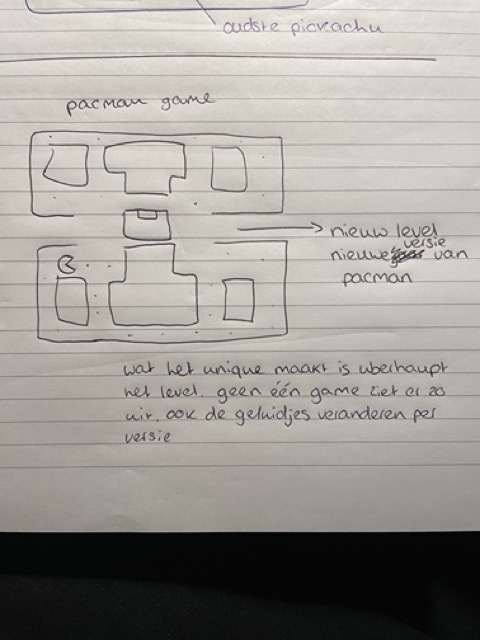 oudste picreachu
pacman game
nieuw level
nieuwe versie van
pacman
wat het unique maakt is uberhaupt
het level. geen één game ziet er zo
uit. ook de geluidjes veranderen per
versie